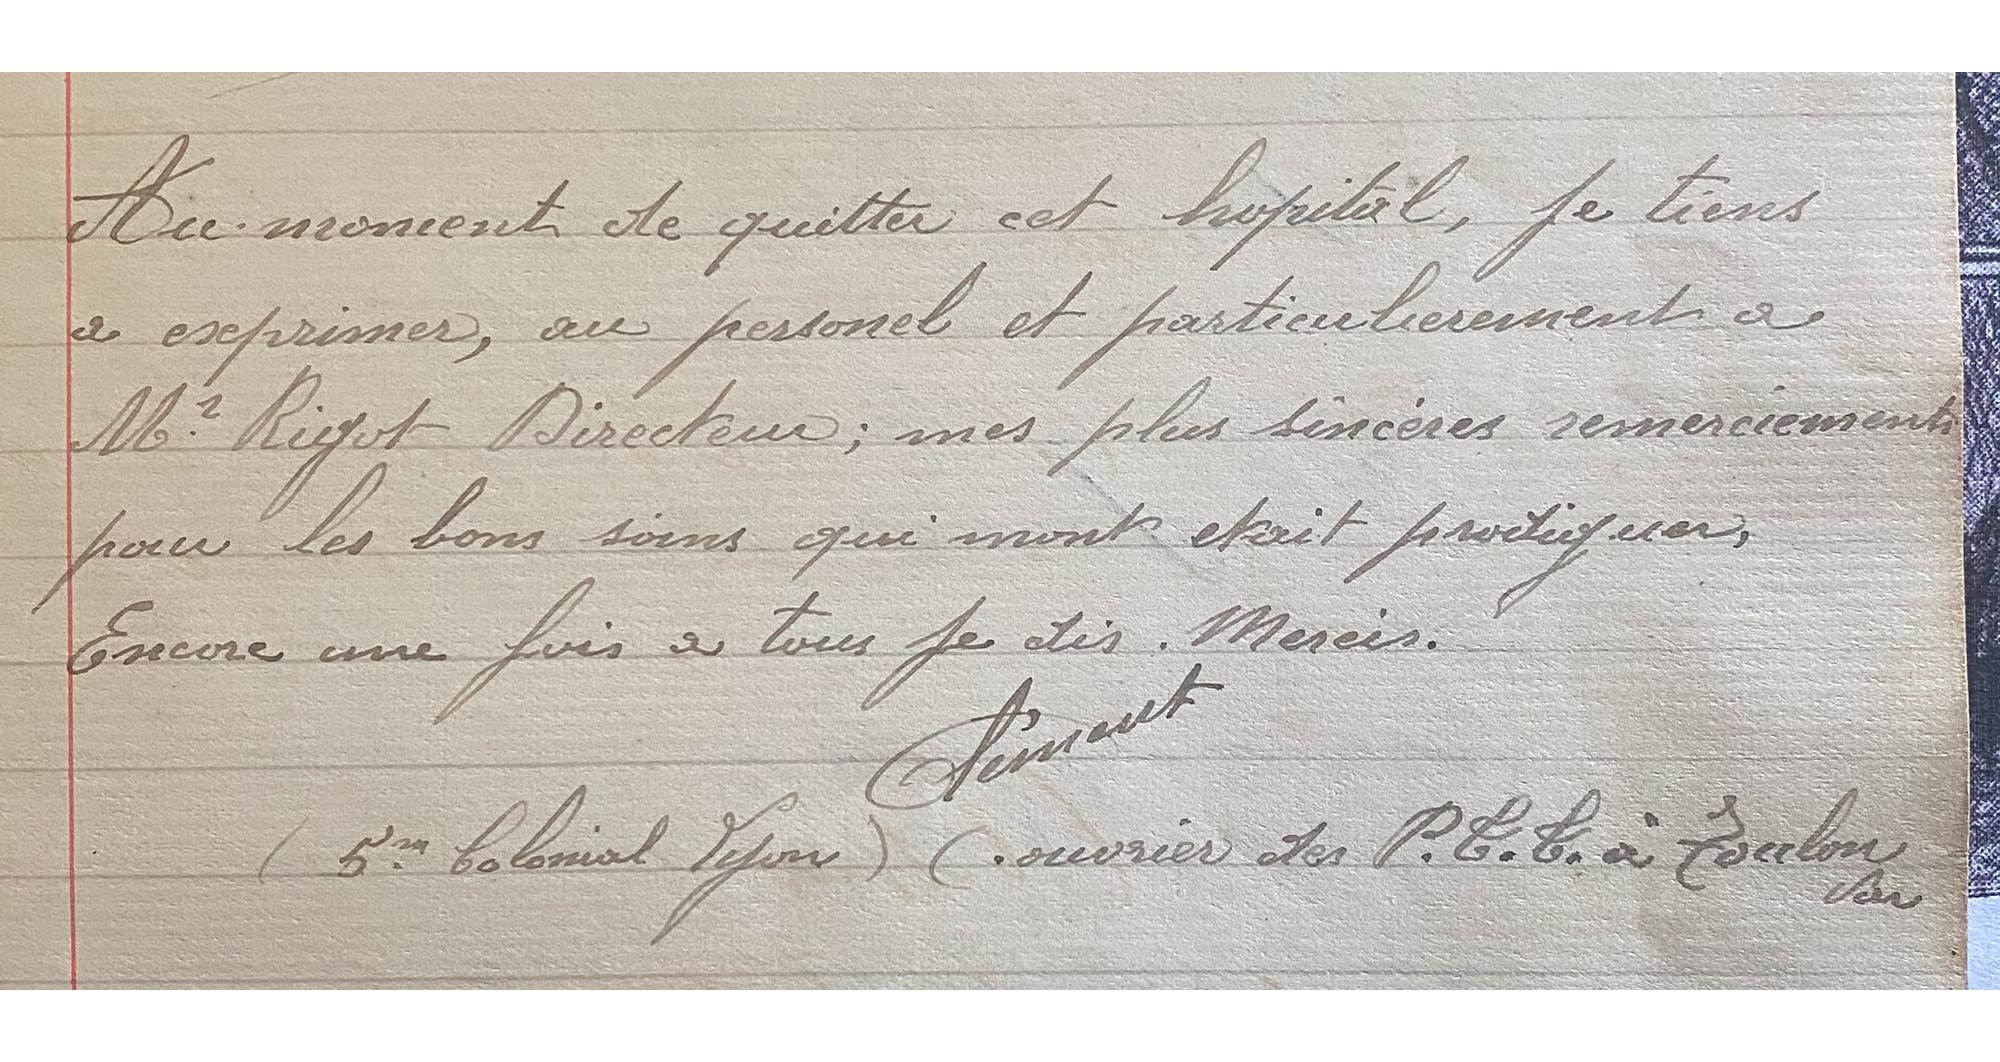 Au moment de quitter cet hopitâl, je tiens
a exprimer, au personel et particulierement a
Mr. Rigot Directeur; mes plus sincéres remerciements
pour les bons soins qui mont etait prodiguer,
Encore une fois a tous je dis. Mercis.
(5m Colonial Lyon) (.ouvrier des P.T.T. à Toulon
Var